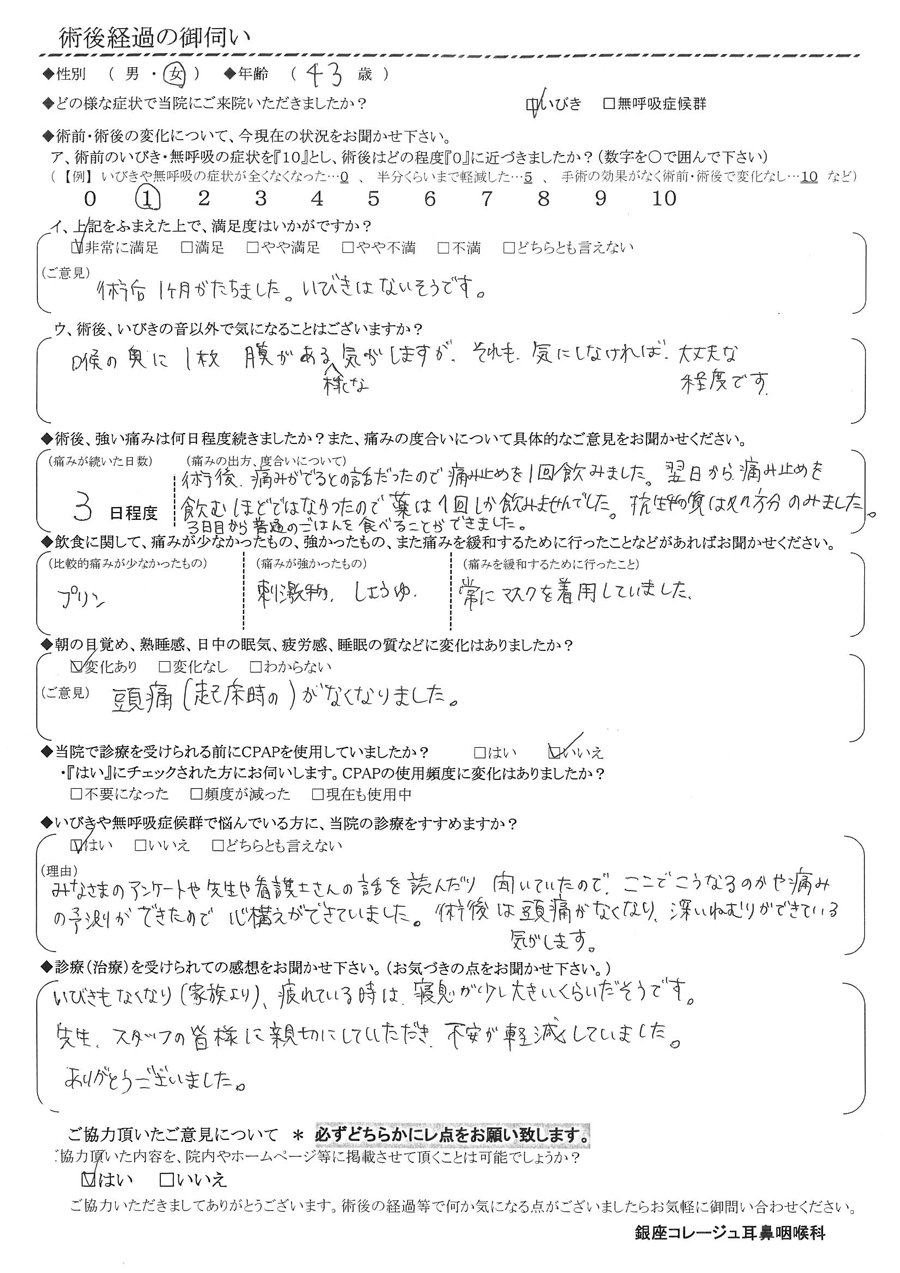 術後経過の御伺い
◆性別 ( 男 ・ 女 ) ◆年齢 ( 43 歳 )
◆どの様な症状で当院にご来院いただきましたか? ☑いびき □無呼吸症候群
◆術前・術後の変化について、今現在の状況をお聞かせ下さい。
ア、術前のいびき・無呼吸の症状を『10』とし、術後はどの程度『0』に近づきましたか?(数字を〇で囲んで下さい)
(【例】いびきや無呼吸の症状が全くなくなった…0 、 半分くらいまで軽減した…5 、 手術の効果がなく術前・術後で変化なし…10 など)
0 1 2 3 4 5 6 7 8 9 10
イ、上記をふまえた上で、満足度はいかがですか?
☑非常に満足 □満足 □やや満足 □やや不満 □不満 □どちらとも言えない
(ご意見)
術後1ヶ月がたちました。いびきはないそうです。
ウ、術後、いびきの音以外で気になることはございますか?
喉の奥に1枚 膜がある様な気がしますが、それも、気にしなければ、大丈夫な
程度です。
◆術後、強い痛みは何日程度続きましたか?また、痛みの度合いについて具体的なご意見をお聞かせください。
(痛みが続いた日数) (痛みの出方、度合いについて)
3 日程度
術後、痛みがでるとの話だったので痛み止めを1回飲みました。翌日から痛み止めを
飲むほどではなかったので薬は1回しか飲みませんでした。抗生物質は処方分のみました。
3日目から普通のごはんを食べることができました。
◆飲食に関して、痛みが少なかったもの、強かったもの、また痛みを緩和するために行ったことなどがあればお聞かせください。
(比較的痛みが少なかったもの) (痛みが強かったもの) (痛みを緩和するために行ったこと)
プリン 刺激物、しょうゆ、 常にマスクを着用していました、
◆朝の目覚め、熟睡感、日中の眠気、疲労感、睡眠の質などに変化はありましたか?
☑変化あり □変化なし □わからない
(ご意見) 頭痛(起床時の)がなくなりました。
◆当院で診療を受けられる前にCPAPを使用していましたか? □はい ☑いいえ
・『はい』にチェックされた方にお伺いします。CPAPの使用頻度に変化はありましたか?
□不要になった □頻度が減った □現在も使用中
◆いびきや無呼吸症候群で悩んでいる方に、当院の診療をすすめますか?
☑はい □いいえ □どちらとも言えない
(理由)
みなさまのアンケートや先生や看護士さんの話を読んだり 聞いていたので、ここでこうなるのかや痛み
の予測ができたので 心構えができていました。術後は頭痛がなくなり、深いねむりができている
気がします。
◆診療(治療)を受けられての感想をお聞かせ下さい。(お気づきの点をお聞かせ下さい。)
いびきもなくなり(家族より)、疲れている時は、寝息が少し大きいくらいだそうです。
先生、スタッフの皆様に親切にしていただき、不安が軽減していました。
ありがとうございました。
ご協力頂いたご意見について * 必ずどちらかにレ点をお願い致します。
ご協力頂いた内容を、院内やホームページ等に掲載させて頂くことは可能でしょうか?
☑はい □いいえ
ご協力いただきましてありがとうございます。術後の経過等で何か気になる点がございましたらお気軽に御問い合わせください。
銀座コレージュ耳鼻咽喉科